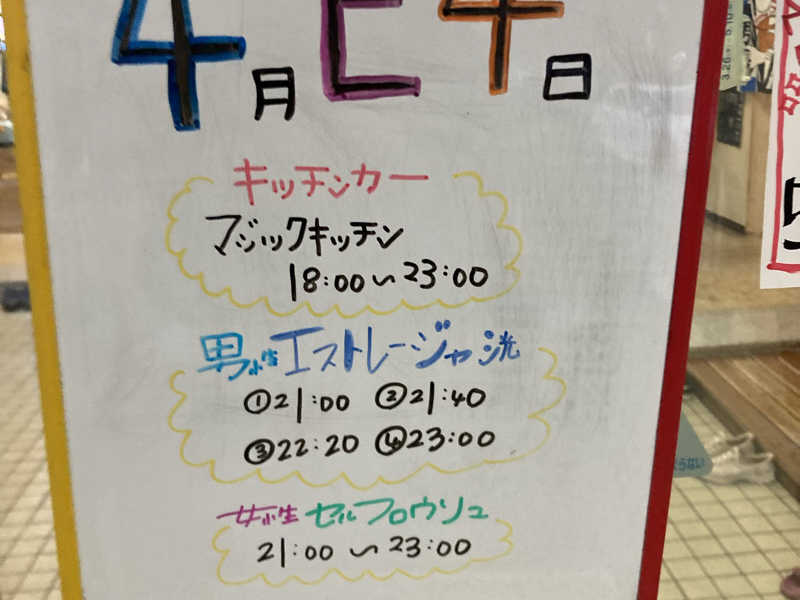 4月24日
キッチンカー
マジックキッチン
18:00~23:00
男性エストレージャ洸
①21:00 ②21:40
③22:20 ④23:00
女性セルフロウリュ
21:00~23:00